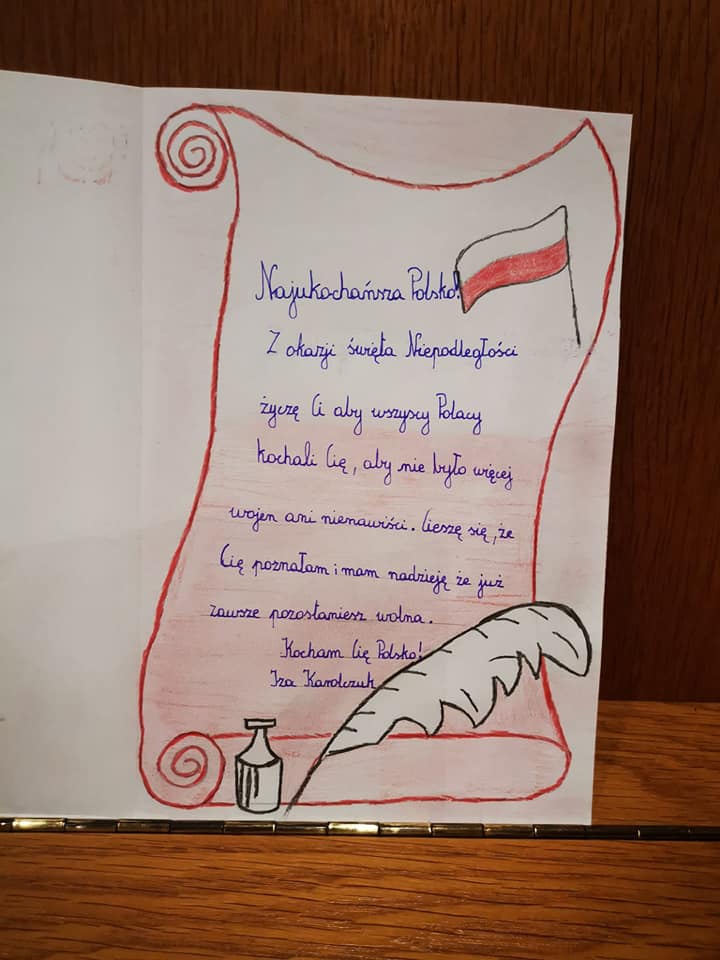 Najukochańsza Polsko!
Z okazji święta Niepodległości
życzę Ci aby wszyscy Polacy
kochali Cię, aby nie było więcej
wojen ani nienawiści. Cieszę się, że
Cię poznałam i mam nadzieję że już
zawsze pozostaniesz wolna.
Kocham Cię Polsko!
Iza Karolczuk